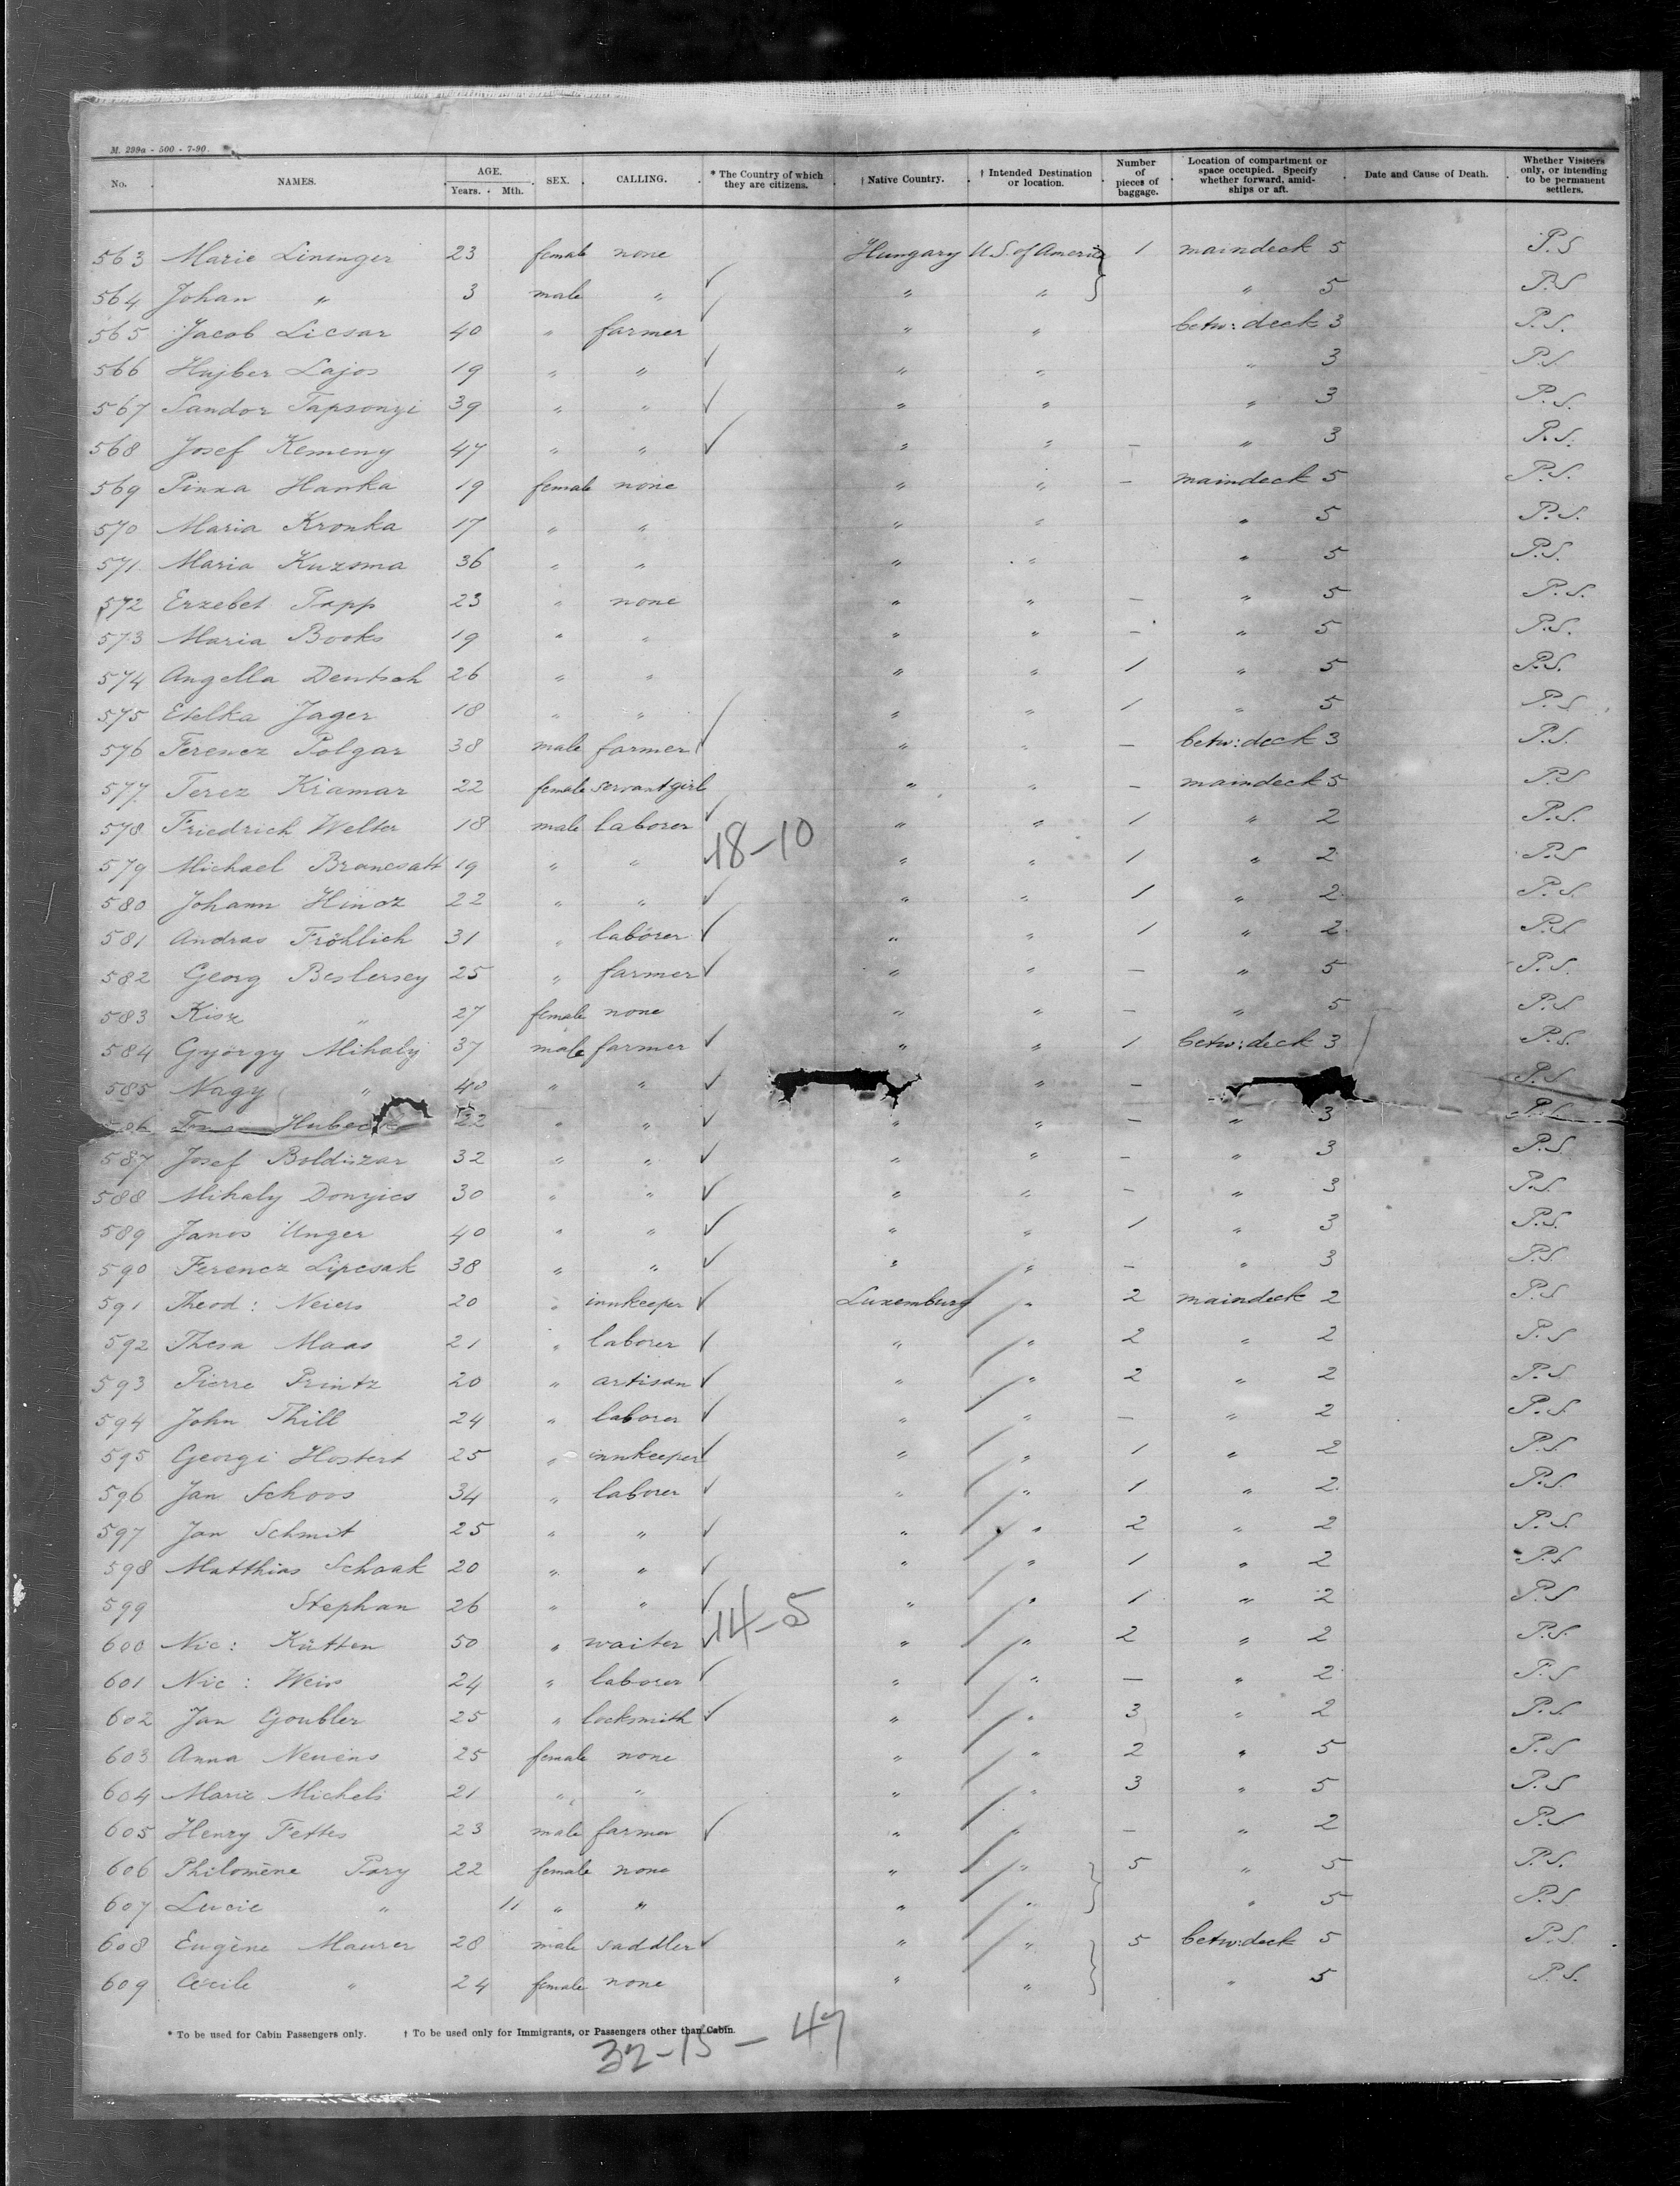 M. 299a - 500 - 7-90.
No. NAMES. AGE. Years. Mth. SEX. CALLING. * The Country of which they are citizens. † Native Country. † Intended Destination or location. Number of pieces of baggage. Location of compartment or space occupied. Specify whether forward, amidships or aft. Date and Cause of Death. Whether Visitors only, or intending to be permanent settlers.
563 Marie Lininger 23 female none Hungary U.S. of America 1 maindeck 5 P.S
564 Johan " 3 male " ✓ " " " 5 P.S
565 Jacob Licsar 40 " farmer ✓ " " betw: deck 3 P.S.
566 Hujber Lajos 19 " " ✓ " " " 3 P.S.
567 Sandor Tapsonyi 39 " " ✓ " " " 3 P.S.
568 Josef Kemeny 47 " " ✓ " " — " 3 P.S.
569 Pinna Hanka 19 female none " " — maindeck 5 P.S.
570 Maria Kronka 17 " " " " " 5 P.S.
571 Maria Kuzsma 36 " " " " " 5 P.S.
572 Erzebet Papp 23 " none " " — " 5 P.S.
573 Maria Books 19 " " " " — " 5 P.S.
574 Angella Deutsch 26 " " " " 1 " 5 P.S.
575 Etelka Jager 18 " " " " 1 " 5 P.S
576 Ferencz Polgar 38 male farmer ✓ " " — betw: deck 3 P.S.
577 Terez Kramar 22 female servantgirl " " — maindeck 5 P.S
578 Friedrich Welter 18 male laborer ✓ " " 1 " 2 P.S.
18-10
579 Michael Brancsatt 19 " " ✓ " " 1 " 2 P.S
580 Johann Hincz 22 " " ✓ " " 1 " 2 P.S
581 Andras Fröhlich 31 " laborer ✓ " " 1 " 2 P.S
582 Georg Beslersey 25 " farmer ✓ " " — " 5 P.S.
583 Kisz " 27 female none " " — " 5 P.S
584 György Mihaly 37 male farmer ✓ " " 1 betw: deck 3 P.S.
585 Nagy " 40 " " ✓ " — P.S
22 " " ✓ " " — " 3 P.S.
587 Josef Boldiszar 32 " " ✓ " " — " 3 P.S
588 Mihaly Donyics 30 " " ✓ " " — " 3 P.S.
589 Janos Unger 40 " " ✓ " " 1 " 3 P.S.
590 Ferencz Lipcsak 38 " " ✓ " " — " 3 P.S.
591 Theod: Neiers 20 " innkeeper ✓ Luxemburg " 2 maindeck 2 P.S
592 Thesa Maas 21 " laborer ✓ " " 2 " 2 P.S
593 Pierre Printz 20 " artisan ✓ " " 2 " 2 P.S.
594 John Thill 24 " laborer ✓ " " — " 2 P.S
595 Georgi Hostert 25 " innkeeper ✓ " " 1 " 2 P.S
596 Jan Schoos 34 " laborer ✓ " " 1 " 2 P.S.
597 Jan Schmit 25 " " ✓ " " 2 " 2 P.S.
598 Matthias Schaak 20 " " ✓ " " 1 " 2 P.S
599 Stephan 26 " " ✓ " " 1 " 2 P.S
14-5
600 Nic: Kütten 50 " waiter ✓ " " 2 " 2 P.S.
601 Nic: Weis 24 " laborer ✓ " " — " 2 P.S
602 Jan Goubler 25 " locksmith ✓ " " 3 " 2 P.S
603 Anna Neuens 25 female none " " 2 " 5 P.S
604 Marie Michels 21 " " " " 3 " 5 P.S
605 Henry Fettes 23 male farmer ✓ " " — " 2 P.S
606 Philomène Pary 22 female none " " 5 " 5 P.S.
607 Lucie " 11 " " " " " 5 P.S
608 Eugène Maurer 28 male saddler ✓ " " 5 betw: deck 5 P.S.
609 Cécile " 24 female none " " " 5 P.S.
* To be used for Cabin Passengers only. † To be used only for Immigrants, or Passengers other than Cabin.
32-15-47